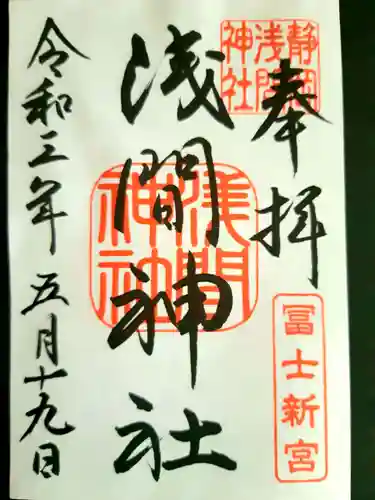 奉拝
静岡
浅間
神社
冨士新宮
浅間神社
浅間
神社
令和三年五月十九日